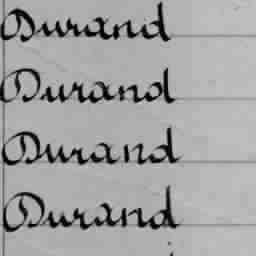 Durand
Durand
Durand
Durand